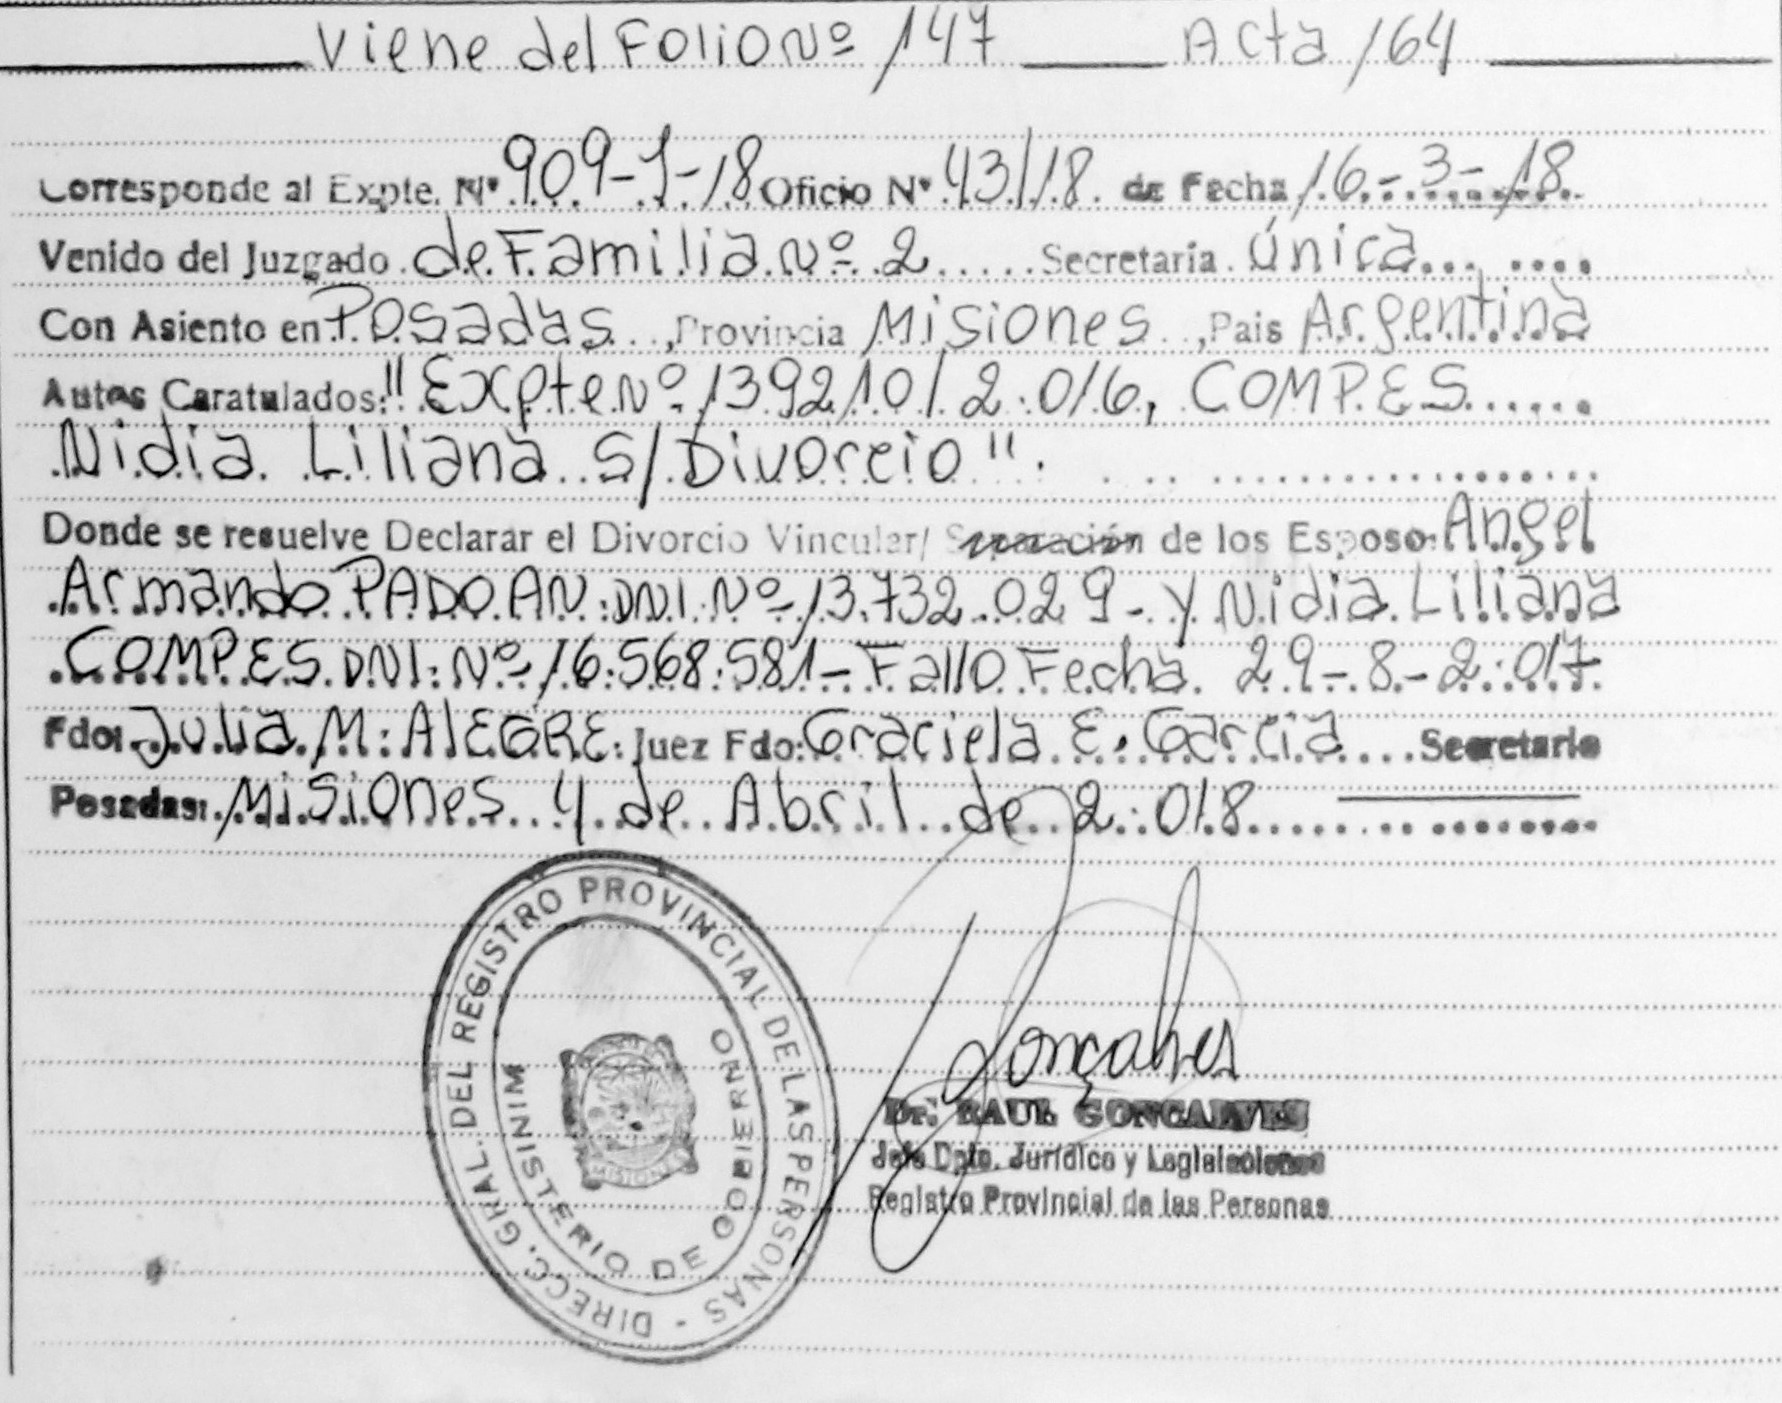 Viene del Folio Nº 147 Acta 164
Corresponde al Expte. Nº 909-J-18 Oficio Nº 43/18 de Fecha 16-3-18
Venido del Juzgado de Familia Nº 2 Secretaria Única
Con Asiento en Posadas, Provincia Misiones, Pais Argentina
Autos Caratulados: "Expte Nº 139210/2.016, COMPES
Nidia Liliana s/ Divorcio".
Donde se resuelve Declarar el Divorcio Vincular/ Separación de los Esposo: Angel
Armando PADOAN. DNI. Nº 13.732.029- y Nidia Liliana
COMPES. DNI. Nº 16.568.581- Fallo Fecha 29-8-2.017
Fdo: Julia M. AlEGRE. Juez Fdo: Graciela E. Garcia Secretario
Posadas: Misiones 4 de Abril de 2.018
DIRECC. GRAL. DEL REGISTRO PROVINCIAL DE LAS PERSONAS -
MINISTERIO DE GOBIERNO
MISIONES
Goncalves
Dr. RAUL GONCALVES
Jefe Dpto. Jurídico y Legislaciones
Registro Provincial de las Personas